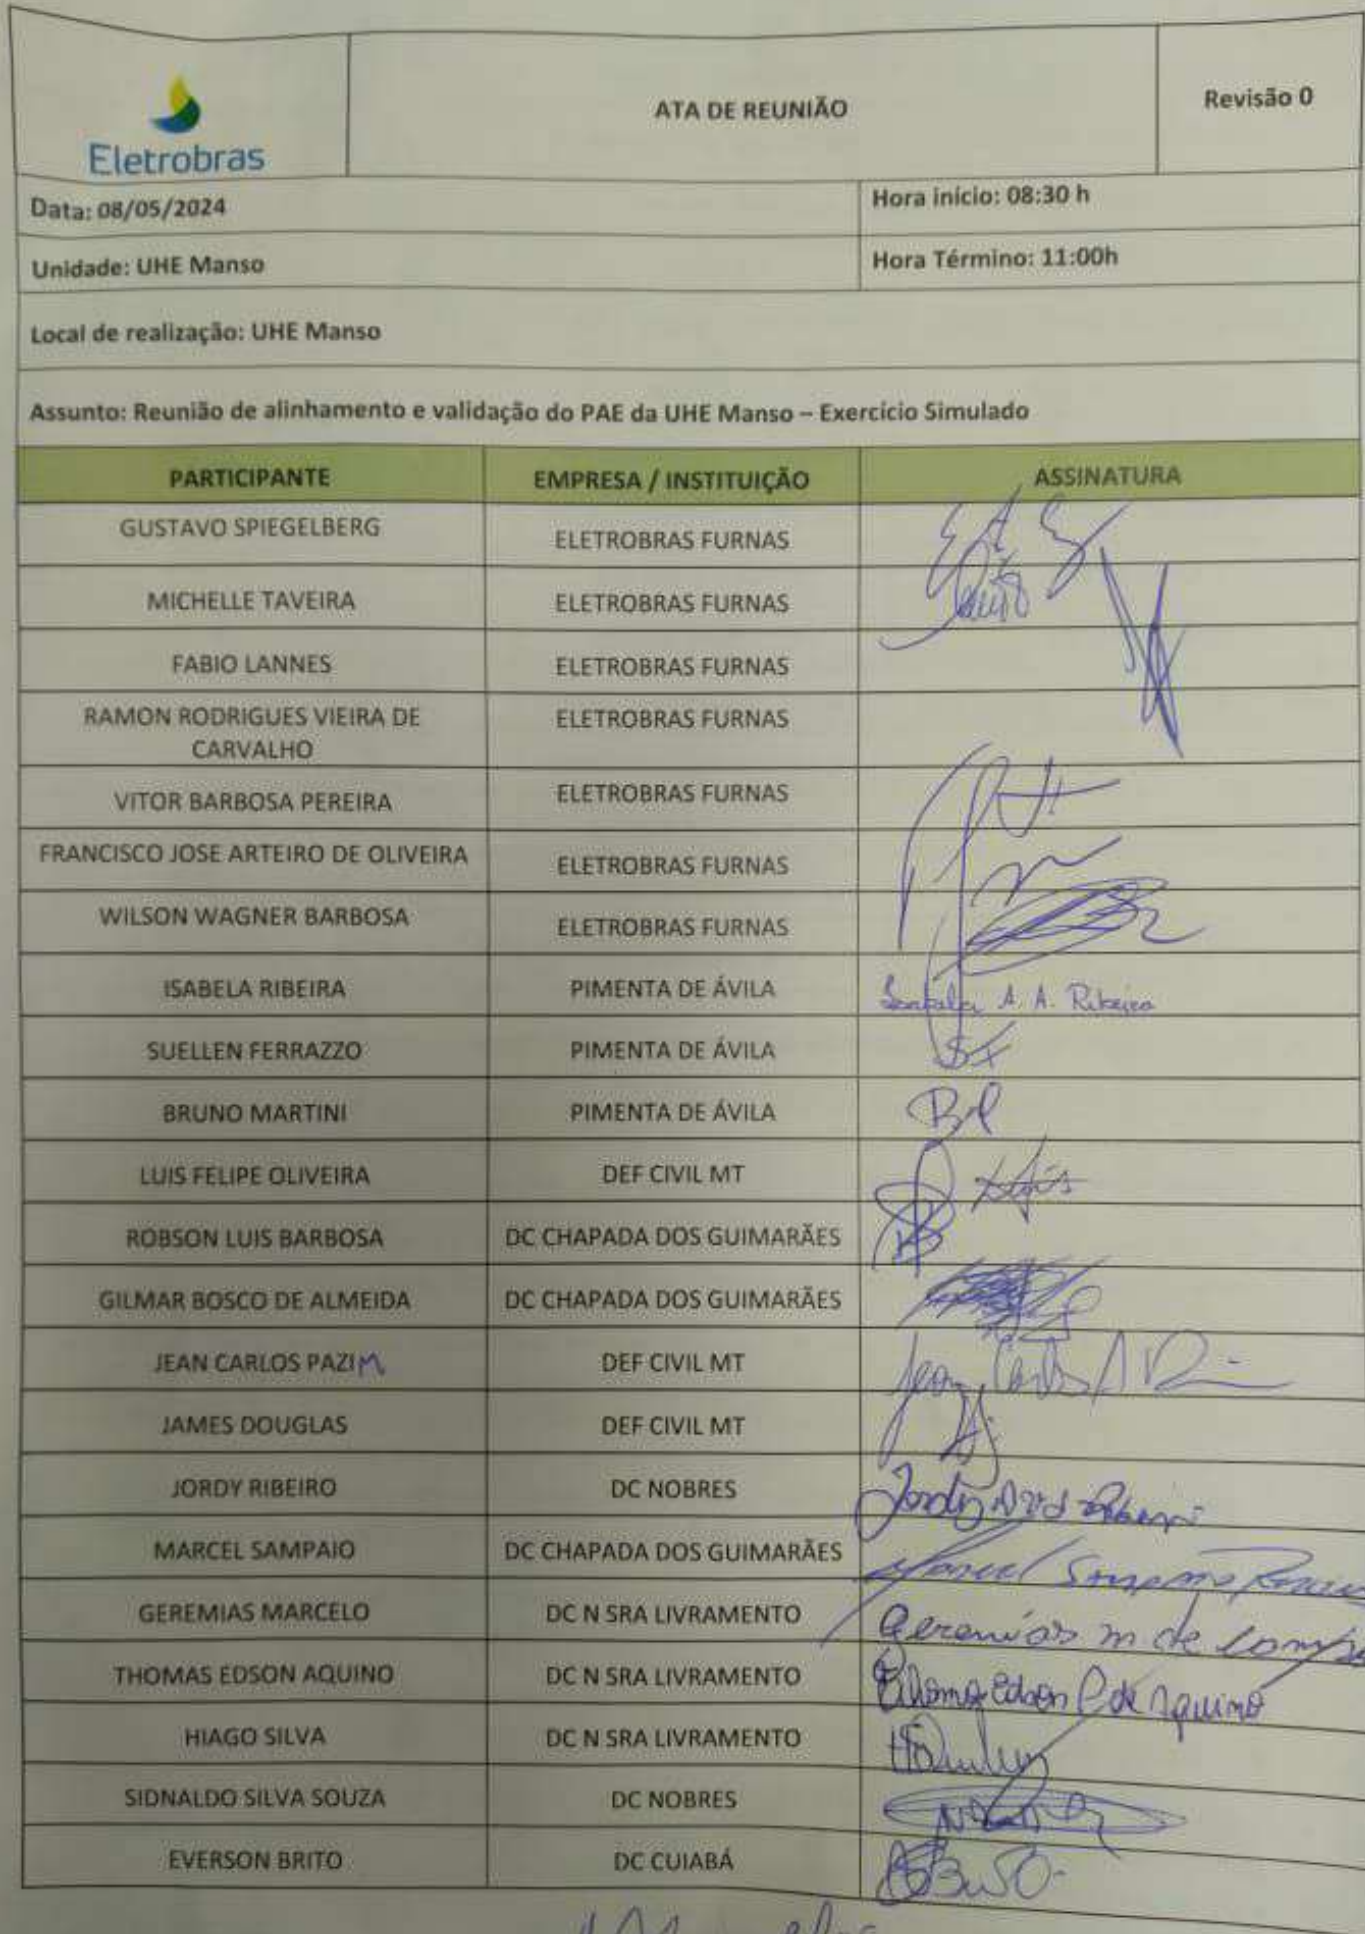 Eletrobras
ATA DE REUNIÃO
Revisão 0
Data: 08/05/2024
Hora início: 08:30 h
Unidade: UHE Manso
Hora Término: 11:00h
Local de realização: UHE Manso
Assunto: Reunião de alinhamento e validação do PAE da UHE Manso – Exercício Simulado
PARTICIPANTE EMPRESA / INSTITUIÇÃO ASSINATURA
GUSTAVO SPIEGELBERG ELETROBRAS FURNAS
MICHELLE TAVEIRA ELETROBRAS FURNAS
FABIO LANNES ELETROBRAS FURNAS
RAMON RODRIGUES VIEIRA DE ELETROBRAS FURNAS
CARVALHO
VITOR BARBOSA PEREIRA ELETROBRAS FURNAS
FRANCISCO JOSE ARTEIRO DE OLIVEIRA ELETROBRAS FURNAS
WILSON WAGNER BARBOSA ELETROBRAS FURNAS
ISABELA RIBEIRA PIMENTA DE ÁVILA Isabela A. A. Ribeiro
SUELLEN FERRAZZO PIMENTA DE ÁVILA SF
BRUNO MARTINI PIMENTA DE ÁVILA
LUIS FELIPE OLIVEIRA DEF CIVIL MT
ROBSON LUIS BARBOSA DC CHAPADA DOS GUIMARÃES
GILMAR BOSCO DE ALMEIDA DC CHAPADA DOS GUIMARÃES
JEAN CARLOS PAZIM DEF CIVIL MT Jean Carlos A
JAMES DOUGLAS DEF CIVIL MT
JORDY RIBEIRO DC NOBRES Jordy
MARCEL SAMPAIO DC CHAPADA DOS GUIMARÃES Marcel Sampaio
GEREMIAS MARCELO DC N SRA LIVRAMENTO Geremias m de
THOMAS EDSON AQUINO DC N SRA LIVRAMENTO Thomas Edson P de Aquino
HIAGO SILVA DC N SRA LIVRAMENTO
SIDNALDO SILVA SOUZA DC NOBRES
EVERSON BRITO DC CUIABÁ